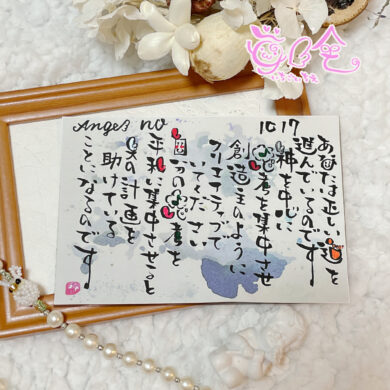 Angel no 1017
あなたは正しい道を
選んでいるのです
神を中心に
思考を集中させ
創造主のように
クリエイティブで
いてください
自分の思考を
平和に集中させると
天の計画を
助けている
ことになるのです